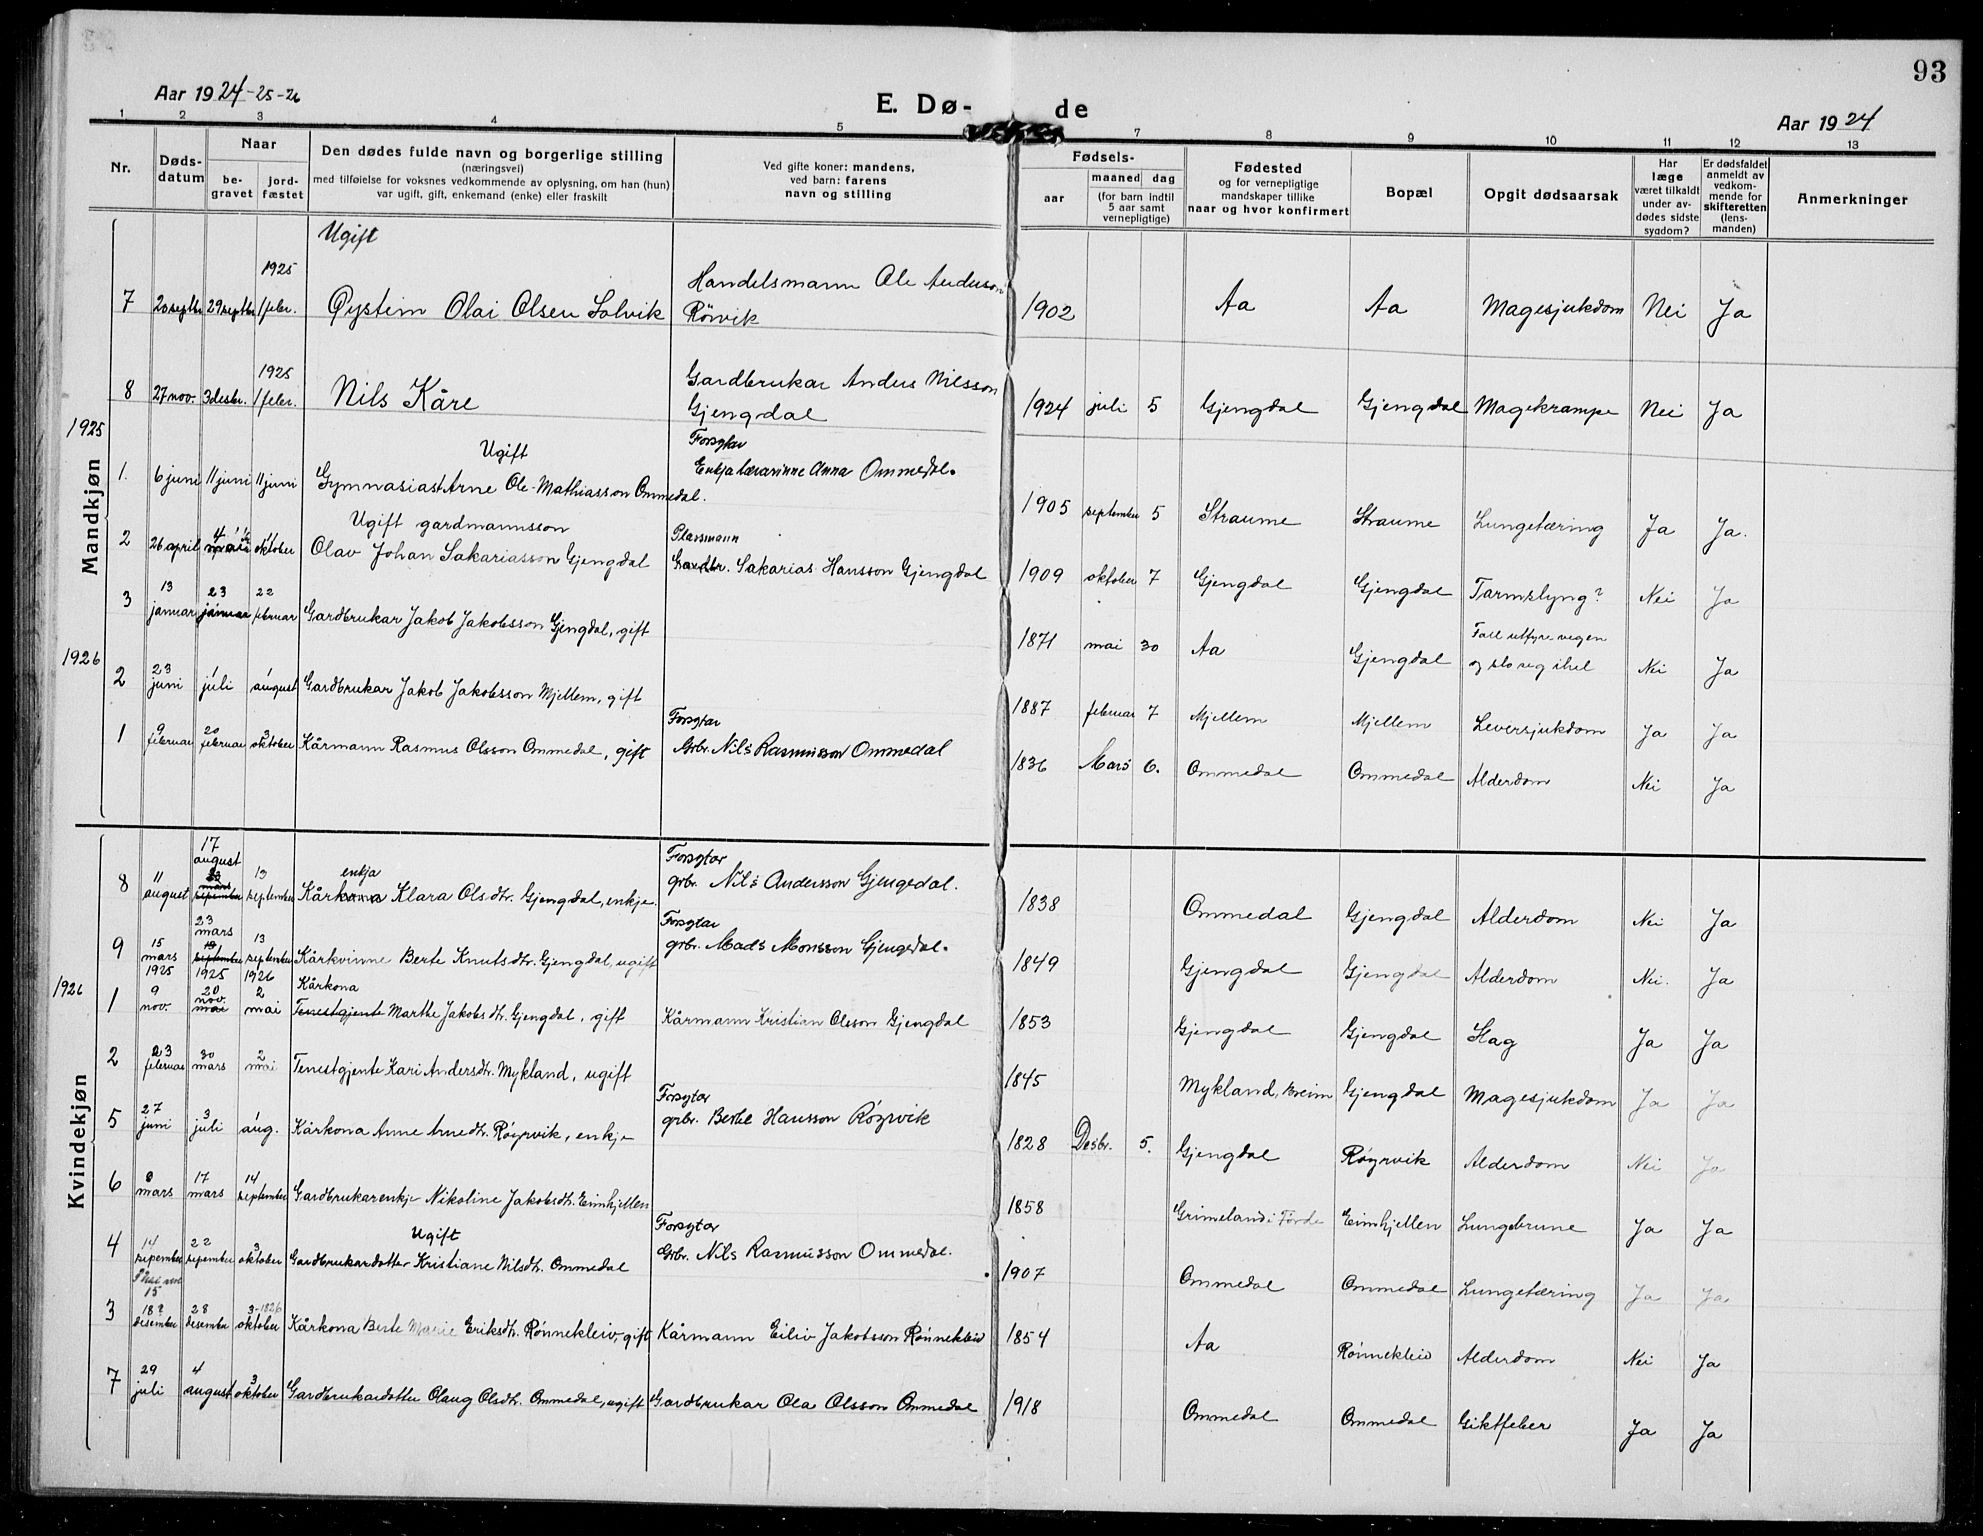 93
Aar 1924-25-26
E. Dø- de
Aar 1924
1 2 3 4 5 7 8 9 10 11 12 13
Nr.
Døds-datum
Naar
be-gravet
jord-fæstet
Den dødes fulde navn og borgerlige stilling
(næringsvei)
med tilføielse for voksnes vedkommende av oplysning, om han (hun)
var ugift, gift, enkemand (enke) eller fraskilt
Ved gifte koner: mandens,
ved barn: farens
navn og stilling
Fødsels-
aar
maaned dag
(for barn indtil
5 aar samt
vernepligtige)
Fødested
og for vernepligtige
mandskaper tillike
naar og hvor konfirmert
Bopæl
Opgit dødsaarsak
Har
læge
været tilkaldt
under av-
dødes sidste
sygdom?
Er dødsfaldet
anmeldt av
vedkom-
mende for
skifteretten
(lens-
manden)
Anmerkninger
Mandkjøn
Ugift
1925
7 20 septbr 29 septbr 1 febr. Øystein Olai Olsen Solvik Handelsmann Ole Anderson Rörvik 1902 Aa Aa Magesjukdom Nei Ja
1925
8 27 nov. 3 desbr. 1 febr. Nils Kåre Gardbrukar Anders Nilsson Gjengdal 1924 juli 5 Gjengdal Gjengdal Magekrampe Nei Ja
1925
Ugift
Forsytar
1. 6 juni 11 juni 11 juni Gymnasiast Arne Ole Mathiasson Ommedal. Enkja lærarinne Anna Ommedal. 1905 september 5 Straume Straume Lungetæring Ja Ja.
Ugift gardmannsson
Plassmann
2 26 april 4 mai 11 oktober Olav Johan Sakariasson Gjengdal Gardbr. Sakarias Hansson Gjengdal 1909 oktober 7 Gjengdal Gjengdal Tarmslyng? Nei Ja
3 13 januar 23 januar 22 februar Gardbrukar Jakob Jakobsson Gjengdal, gift 1871 mai 30 Aa Gjengdal Fall utfyre vegen og slo seg ihel Nei Ja
1926
2 23 juni 1 juli 1 august Gardbrukar Jakob Jakobsson Mjellem, gift 1887 februar 7 Mjellem Mjellem Leversjukdom Ja Ja
Forsytar
1 9 februar 20 februar 3 oktober Kårmann Rasmus Olsson Ommedal, gift Grbr. Nils Rasmusson Ommedal 1836 Mars 6. Ommedal Ommedal Alderdom Nei Ja
Kvindekjøn
enkja
Forsytar
8 11 august 17 august 13 september Kårkona Klara Olsdtr. Gjengdal, enkje. grbr. Nils Andersson Gjengedal. 1838 Ommedal Gjengdal Alderdom Nei Ja
Forsytar
9 15 mars 1925 23 mars 19 september 1925 13 september 1926 Kårkvinne Berte Knutsdtr. Gjengdal, ugift grbr. Mads Monsson Gjengedal. 1849 Gjengdal Gjengdal Alderdom Nei. Ja
1926
Kårkona
1 9 nov. 20 nov. mai 2 mai Tenestgjente Marthe Jakobsdtr. Gjengdal, gift Kårmann Kristian Olsson Gjengdal 1853 Gjengdal Gjengdal Slag Ja Ja
2 23 februar 30 mars 2 mai Tenestgjente Kari Andersdtr. Mykland, ugift 1845 Mykland, Breim Gjengdal Magesjukdom Ja Ja
Forsytar
5 27 juni 3 juli 1 aug. Kårkona Anne Arnedtr. Røyrvik, enkje grbr. Bertel Hansson Røyrvik 1828 Desbr. 5. Gjengdal Røyrvik Alderdom Nei Ja
6 8 mars 17 mars 14 september Gardbrukarenkje Nikoline Jakobsdtr. Eimhjellen 1858 Grimeland i Førde Eimhjellen Lungebrune Ja Ja
Ugift
Forsytar
4 14 september 22 september 3 oktober Gardbrukardotter Kristiane Nilsdtr. Ommedal Grbr. Nils Rasmusson Ommedal. 1907 Ommedal Ommedal Lungetæring Ja Ja
15
3 18? desember 28 desember 3-1826 oktober Kårkona Berte Marie Eriksdtr. Rønnekleiv, gift Kårmann Eiliv Jakobsson Rønnekleiv 1854 Aa Rønnekleiv Alderdom Nei Ja
7 29 juli 4 august 3 oktober Gardbrukardotter Olaug Olsdtr. Ommedal, ugift Gardbrukar Ola Olsson Ommedal 1918 Ommedal Ommedal Giktfeber Ja Ja